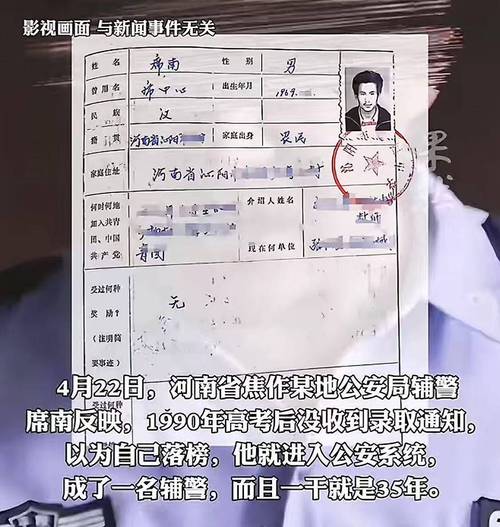 影视画面 与新闻事件无关
姓名 席南 性别 男
曾用名 席中心 出生年月 1969.
民族 汉
籍贯 河南省沁阳 家庭出身 农民
家庭住址 河南省沁阳 村
何时何地 介绍人姓名
加入共青
团、中国 现在何单位
共产党
受过何种 无
奖励?
(注明简
要事迹)
受过何种
4月22日,河南省焦作某地公安局辅警
席南反映,1990年高考后没收到录取通知,
以为自己落榜,他就进入公安系统,
成了一名辅警,而且一干就是35年。